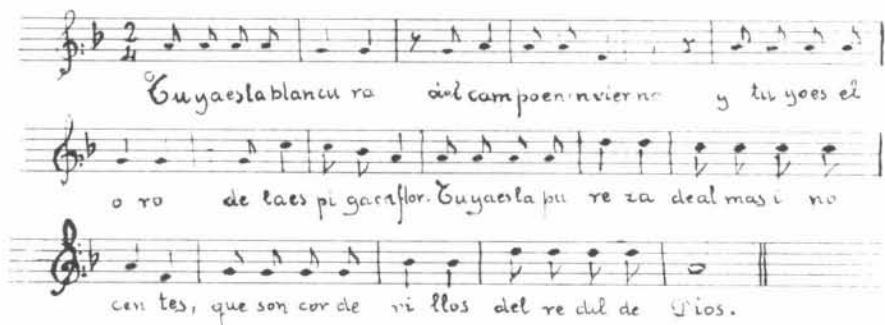 2
4
Tuyaeslablancu ra del campoeninvierno y tu yoes el
o ro de laes pi gaenflor. Tuyaeslapu re za dealmas i no
cen tes, que son cor de ri llos del re dil de Dios.